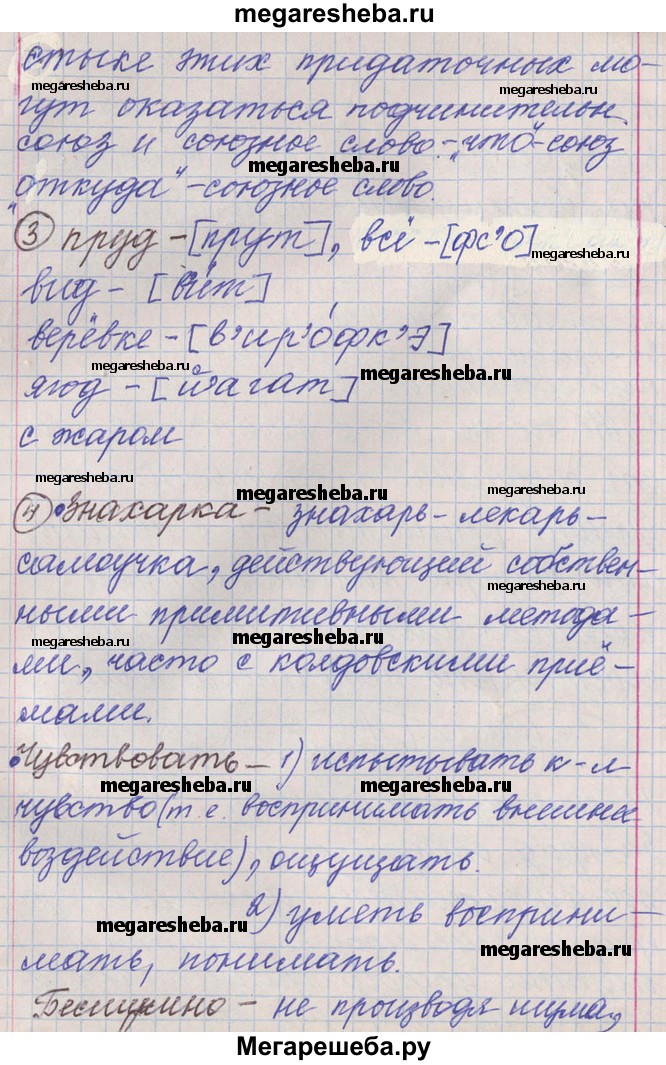 megaresheba.ru
стыке этих придаточных мо-
megaresheba.ru megaresheba.ru
гут оказаться подчинительн.
союз и союзное слово. „что“-союз
megaresheba.ru
„откуда“-союзное слово.
③ пруд - [прут], всё - [фс'О]
megaresheba.ru
вид - [в'ит]
верёвке - [в'ир'о́фк'Э]
megaresheba.ru megaresheba.ru
ягод - [йагат]
с жаром
megaresheba.ru megaresheba.ru
④ •Знахарка - знахарь-лекарь-
megaresheba.ru
самоучка, действующий собствен-
megaresheba.ru
ными примитивными метода-
megaresheba.ru megaresheba.ru
ми, часто с колдовскими приё-
мами.
•Чувствовать - 1) испытывать к-л
megaresheba.ru megaresheba.ru
чувство (т.е. воспринимать внешнее
воздействие), ощущать.
megaresheba.ru
2) уметь восприни-
megaresheba.ru
мать, понимать.
Бесшумно - не производя шума,
Мегарешеба.ру